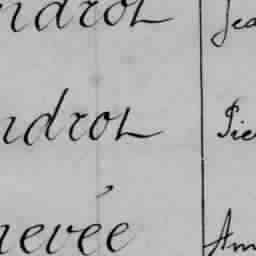 ndrot Jea
ndrot Pie
nevée Am